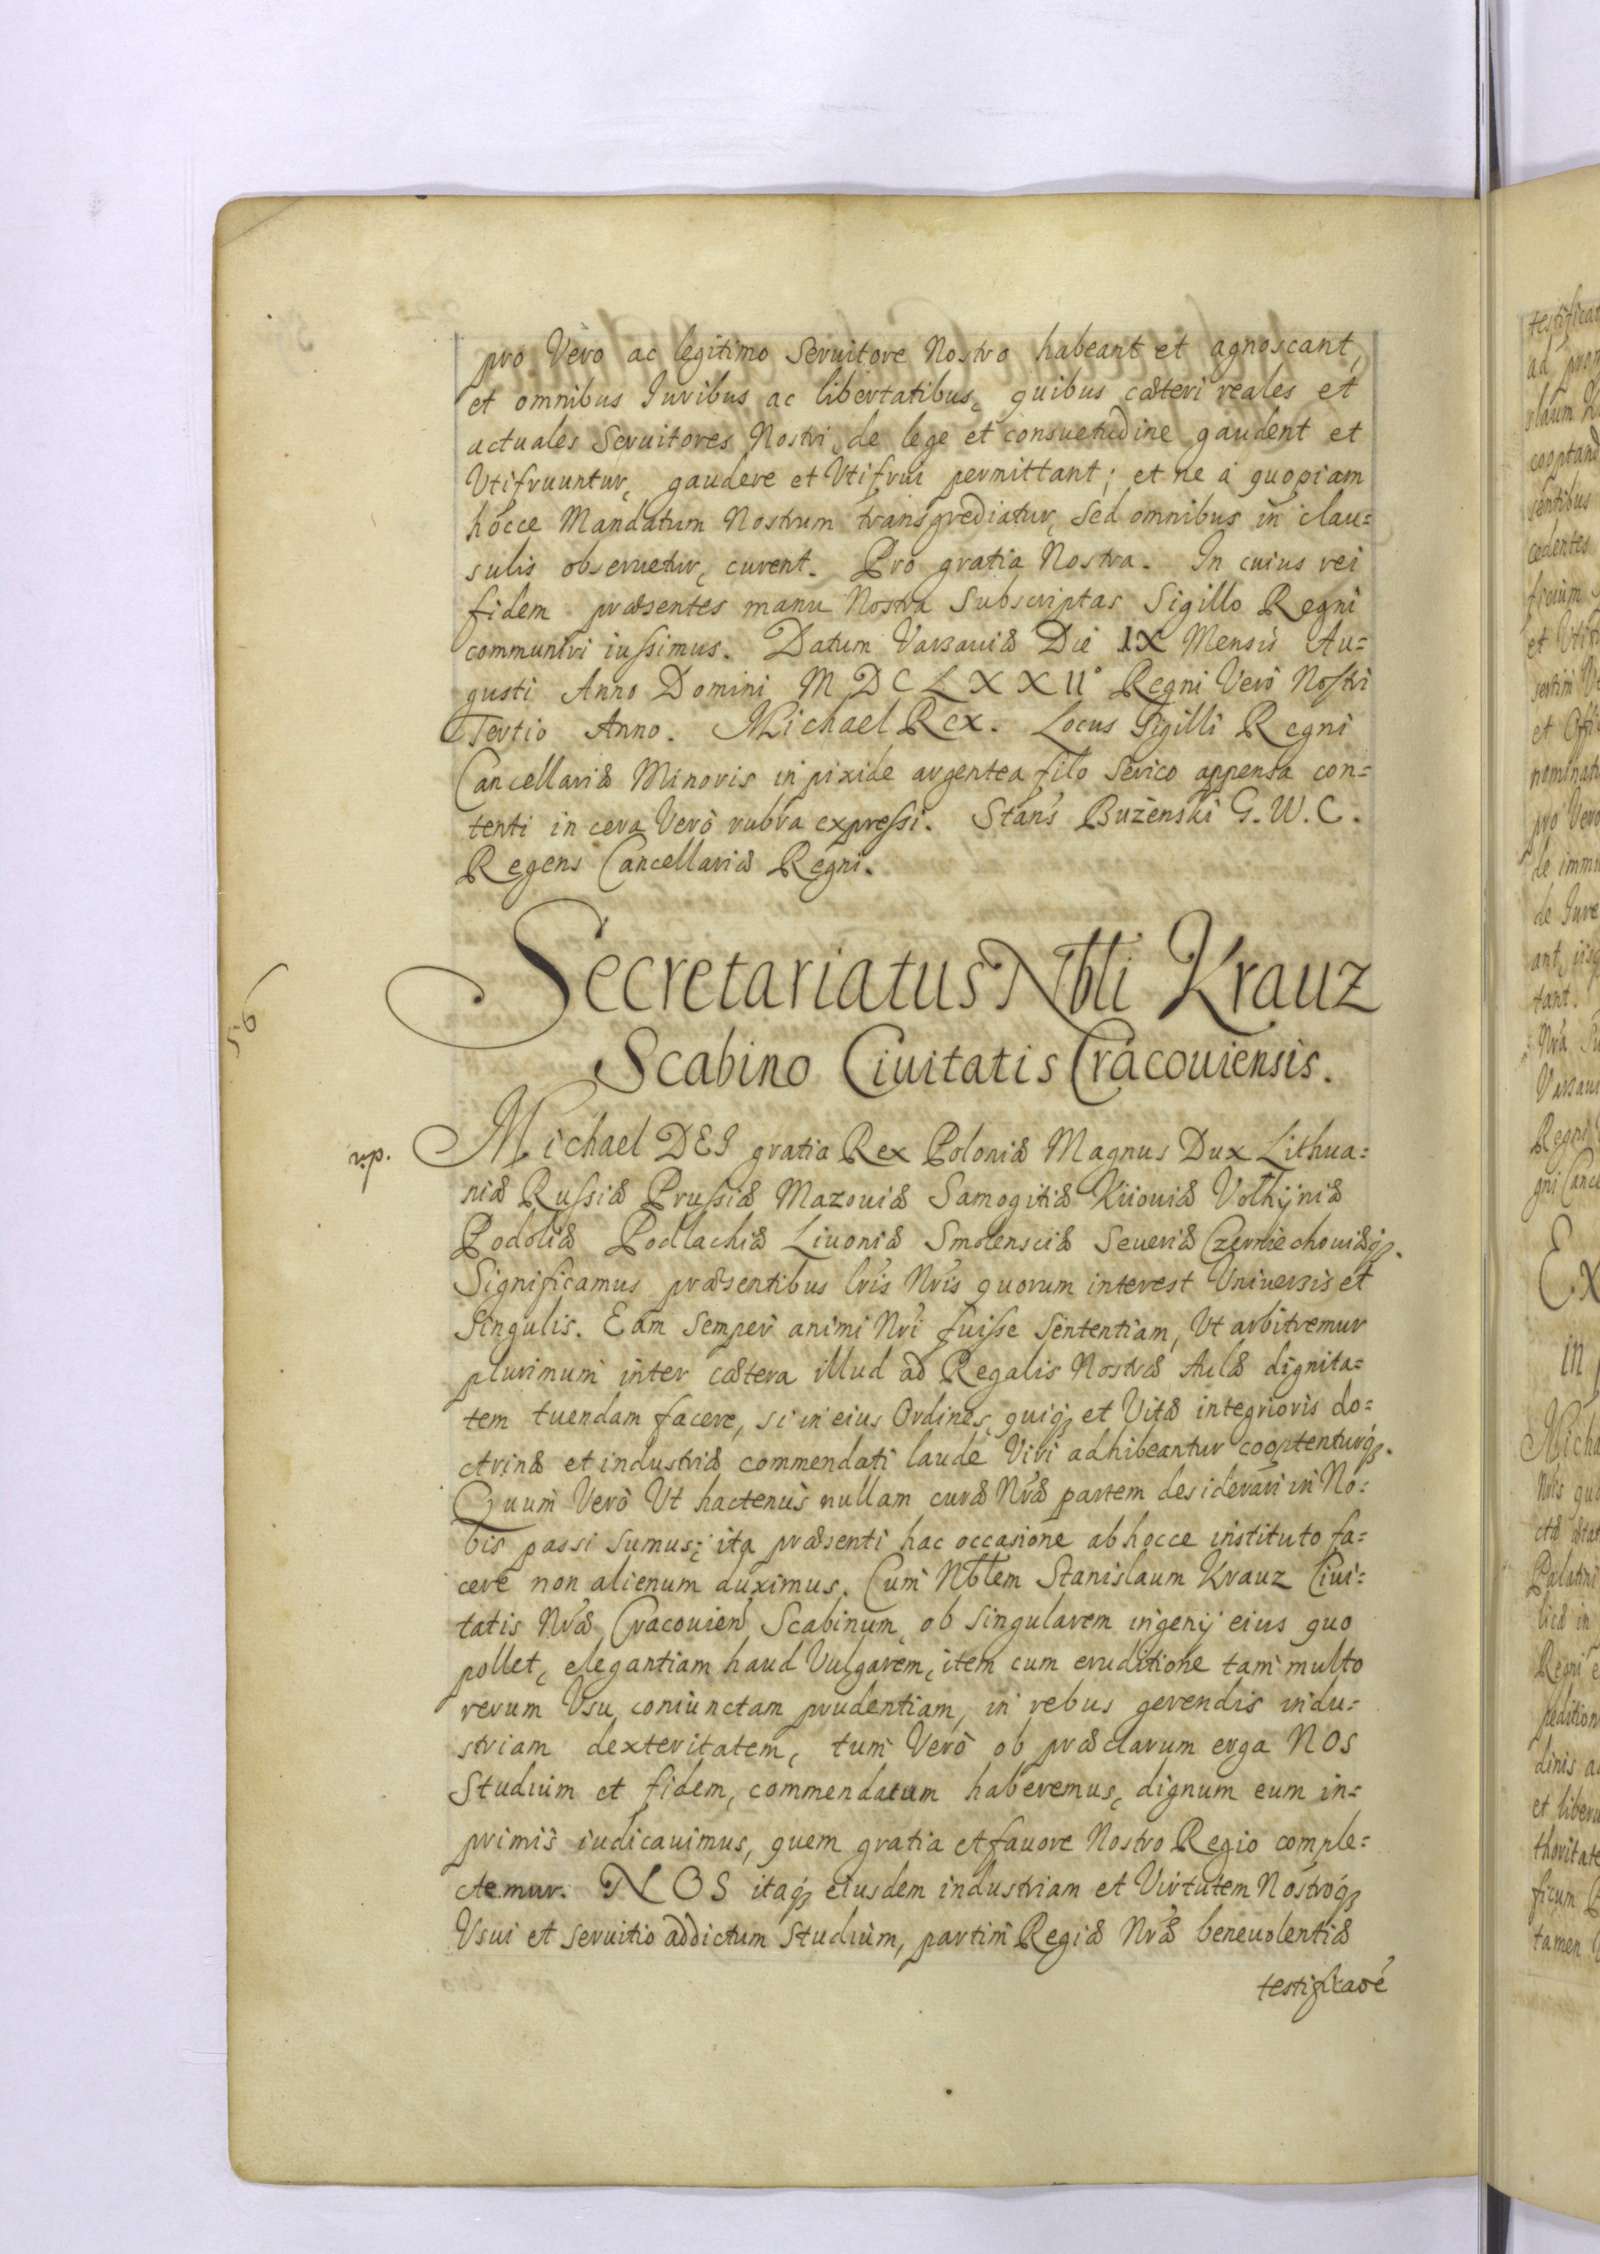 pro Vero ac legitimo Seruitore Nostro habeant et agnoscant,
et omnibus Iuribus ac libertatibus, quibus cæteri reales et
actuales Seruitores Nostri de lege et consuetudine gaudent et
Vtifruuntur, gaudere et Vtifrui permittant; et ne à quopiam
hocce Mandatum Nostrum transgrediatur, Sed omnibus in clau=
sulis obseruetur, curent. Pro gratia Nostra. In cuius rei
fidem præsentes manu Nostra Subscriptas Sigillo Regni
communiri iussimus. Datum Varsauiæ Die IX Mensis Au=
gusti Anno Domini MDCLXXII° Regni Verò Nostri
Tertio Anno. Michael Rex. Locus Sigilli Regni
Cancellariæ Minoris in pixide argentea filo Serico appensa con=
tenti in cera Verò rubra expressi. Stan's Bużenski G.W.C.
Regens Cancellariæ Regni.
Secretariatus Nbli Krauz
Scabino Ciuitatis Cracouiensis.
56
np.
Michael DEI gratia Rex Poloniæ Magnus Dux Lithua=
niæ Russiæ Prussiæ Mazouiæ Samogitiæ Kiiouiæ Volhÿniæ
Podoliæ Podlachiæ Liuoniæ Smolensciæ Seueriæ Czerniechouiæq3.
Significamus præsentibus lris Nris quorum interest Vniuersis et
Singulis. Eam Semper animi Nri fuisse Sententiam, Vt arbitremur
plurimum inter cætera illud ad Regalis Nostræ Aulæ dignita=
tem tuendam facere, si in eius Ordines, quiq3 et Vitæ integrioris do=
ctrinæ et industriæ commendati laude Viri adhibeantur cooptenturq3.
Quum Verò Vt hactenus nullam curæ Nræ partem desiderari in No=
bis passi Sumus; ita præsenti hac occasione ab hocce instituto fa=
cere non alienum duximus. Cum Nblem Stanislaum Krauz Ciui=
tatis Nræ Cracouien' Scabinum, ob Singularem ingenij eius quo
pollet, elegantiam haud Vulgarem, item cum eruditione tam multo
rerum Vsu coniunctam prudentiam, in rebus gerendis indu=
striam dexteritatem, tum Verò ob præclarum erga NOS
Studium et fidem, commendatum haberemus, dignum eum in=
primis iudicauimus, quem gratia et fauore Nostro Regio comple=
ctemur. NOS itaq3 eiusdem industriam et Virtutem Nostroq3
Vsui et seruitio addictum Studium, partim Regiæ Nræ beneuolentiæ
testificaoe'